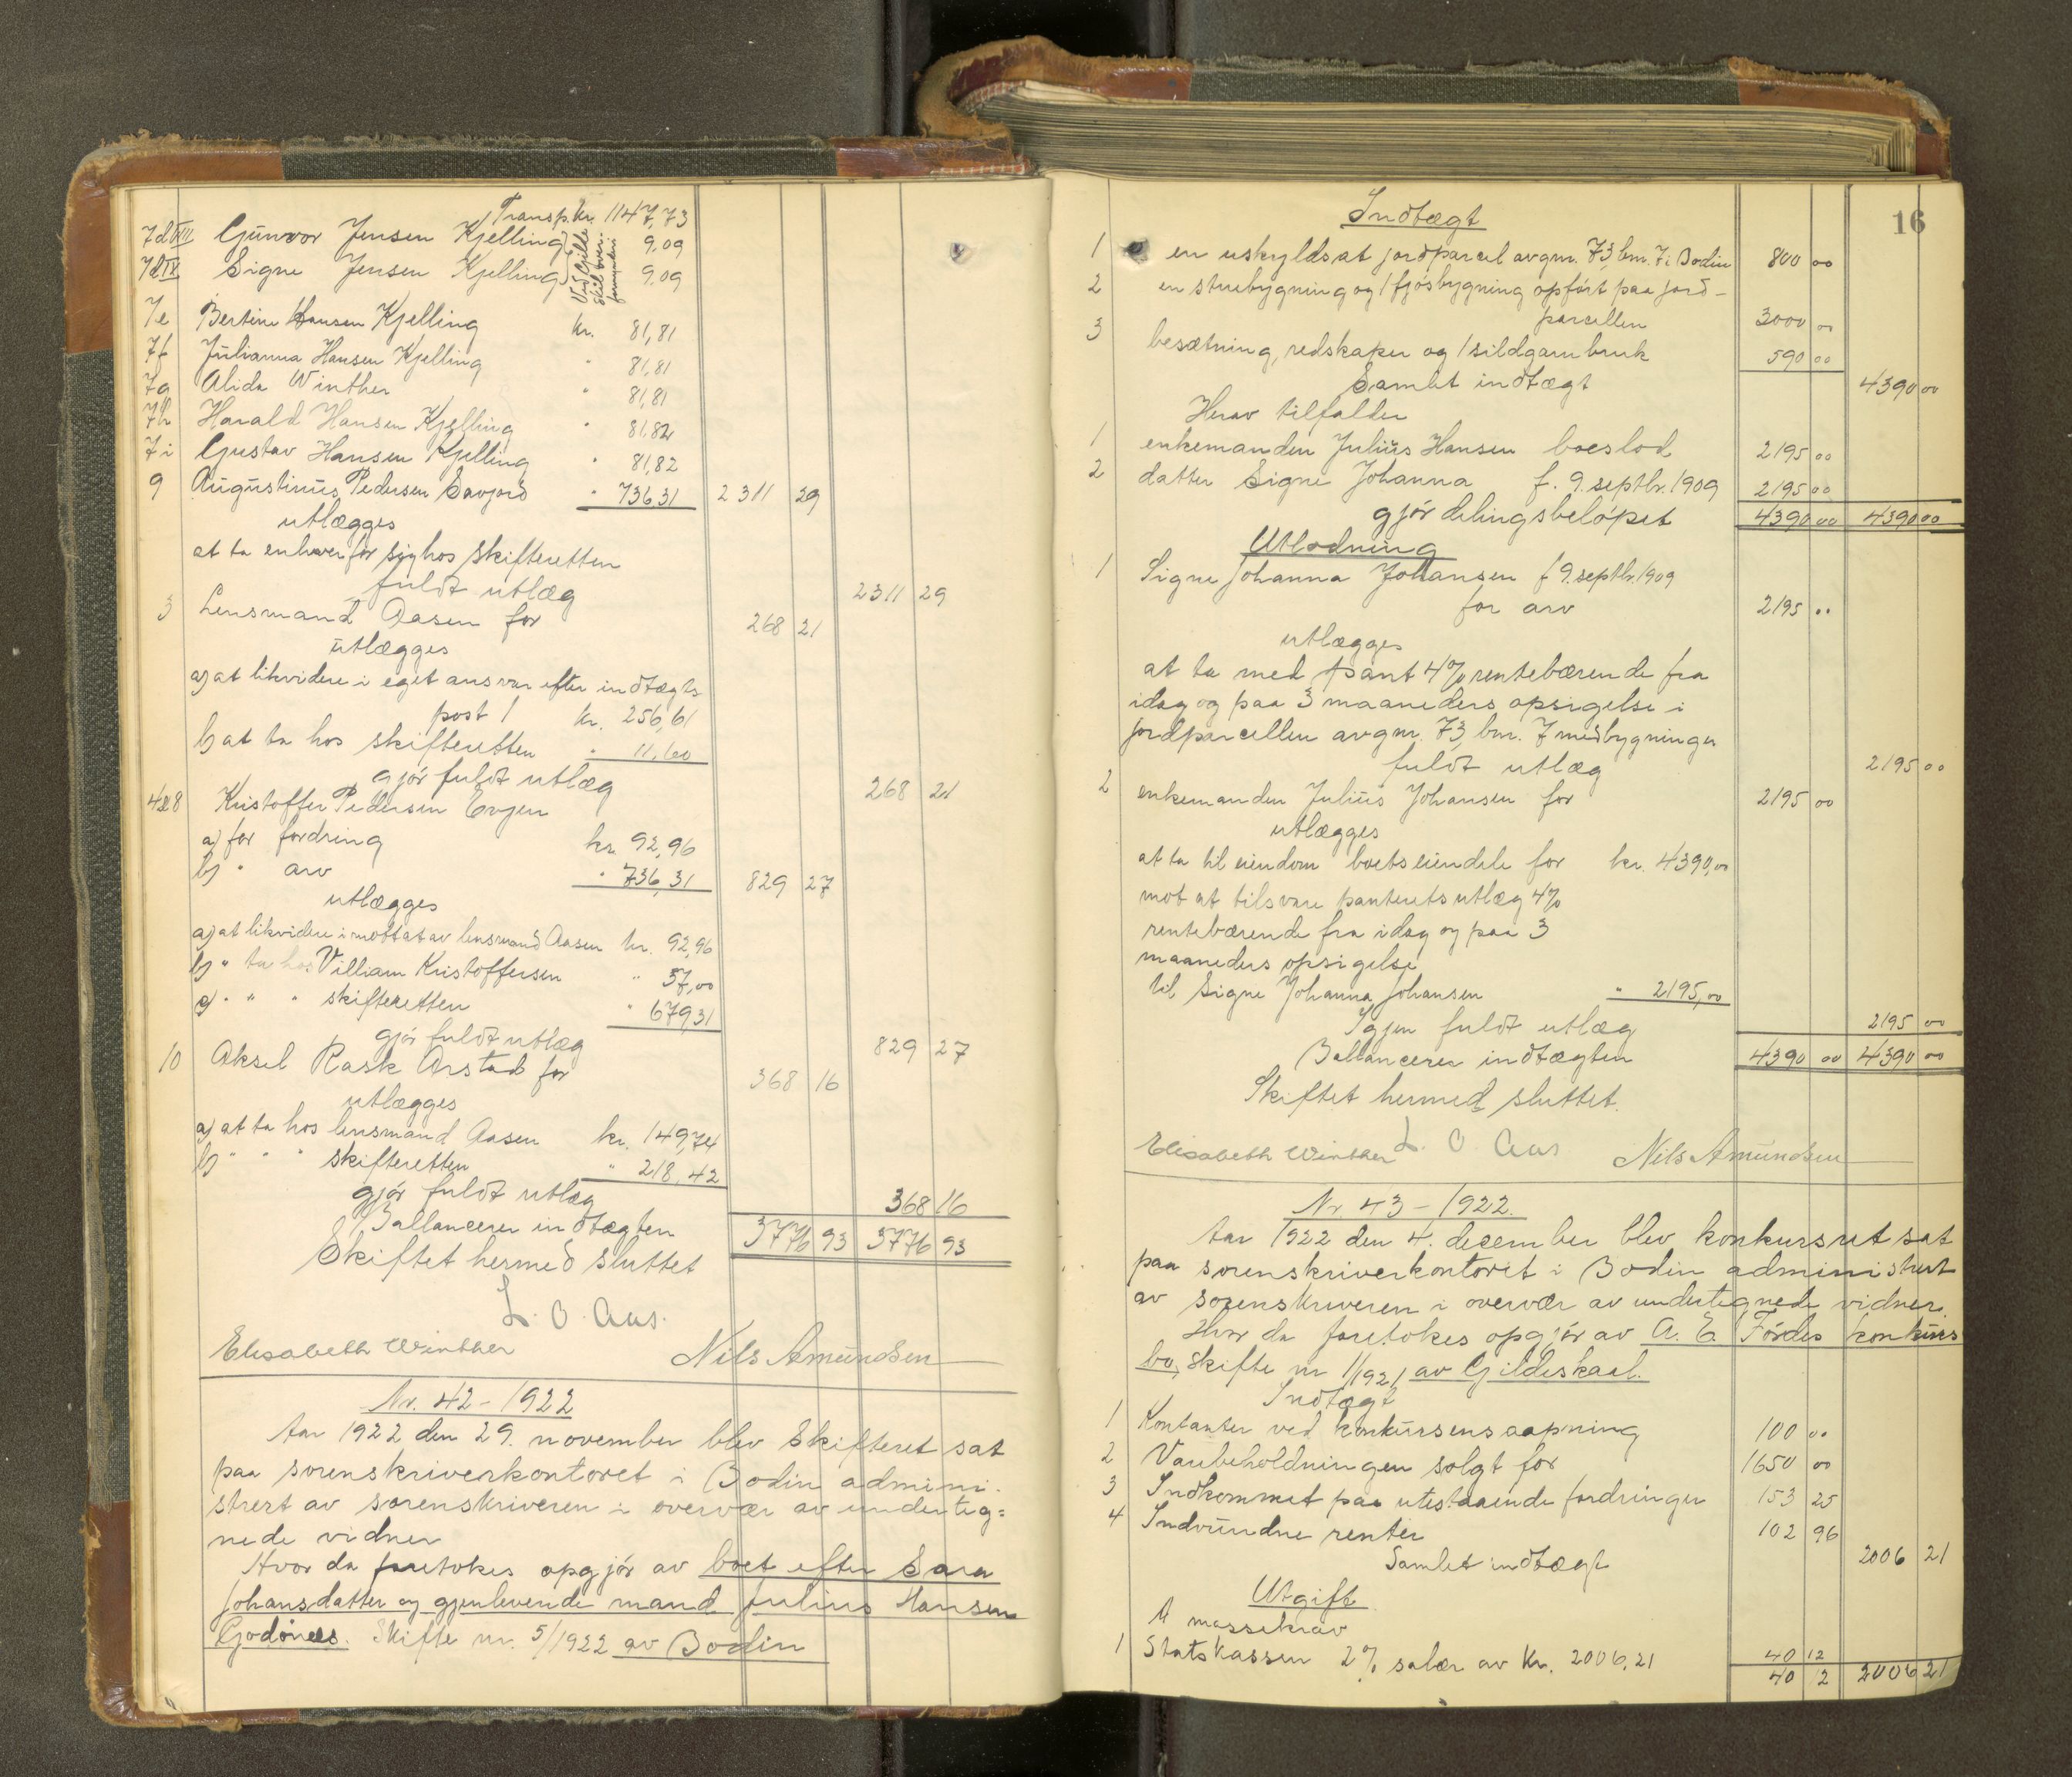 Transp. kr. 1147,73
7d VIII Gunvor Jensen Kjelling 9,09
7d IX Signe Jensen Kjelling 9,09
Ved Gilde-
skål over-
formynderi
7e Bertine Hansen Kjelling kr. 81,81
7f Julianna Hansen Kjelling " 81,81
7g Alida Winther " 81,81
7h Harald Hansen Kjelling " 81,82
7i Gustav Hansen Kjelling " 81,82
9 Augustinus Pedersen Savjord " 736,31 2311 29
utlægges
at ta enhver for sig hos skifteretten
fuldt utlæg 2311 29
3 Lensmand Aasen for 268 21
utlægges
a) at likvidere i eget ansvar efter indtægts
post 1 kr. 256,61
b) at ta hos skifteretten " 11,60
gjør fuldt utlæg 268 21
4 & 8 Kristoffer Pedersen Evjen
a) for fordring kr. 92,96
b) " arv " 736,31 829 27
utlægges
a) at likvidere i mottat av lensmand Aasen kr. 92,96
b) " ta hos Villiam Kristoffersen " 57,00
c) " " " skifteretten " 679,31
gjør fuldt utlæg 829 27
10 Aksel Rask Arstad for 368 16
utlægges
a) at ta hos lensmand Aasen kr. 149,74
b) " " " skifteretten " 218,42
gjør fuldt utlæg 368 16
Ballancerer indtægten 3776 93 3776 93
Skiftet hermed sluttet
L. O. Aas.
Elisabeth Winther Nils Amundsen
Nr. 42 - 1922
Aar 1922 den 29. november blev Skifteret sat
paa sorenskriverkontoret i Bodin admini-
strert av sorenskriveren i overvær av underteg=
nede vidner
Hvor da foretokes opgjør av boet efter Sara
Johansdatter og gjenlevende mand Julius Hansen
Godønes. Skifte nr. 5/1922 av Bodin
16
Indtægt
1 en uskyldsat jordparcel av gnr. 73, bnr. 7 i Bodin 800 00
2 en stuebygning og 1 fjøsbygning opført paa jord-
parcellen 3000 00
3 besætning, redskaper og 1 sildgarnbruk 590 00
Samlet indtægt 4390 00
Herav tilfalder
1 enkemanden Julius Hansen boeslod 2195 00
2 datter Signe Johanna f. 9. septbr. 1909 2195 00
gjør delingsbeløpet 4390 00 4390 00
Utlodning
1 Signe Johanna Johansen f 9. septbr. 1909
for arv 2195 ..
utlægges
at ta med pant 4% rentebærende fra
idag og paa 3 maaneders opsigelse i
jordparcellen av gnr. 73, bnr. 7 med bygninger
fuldt utlæg 2195 00
2 enkemanden Julius Johansen for 2195 00
utlægges
at ta til eiendom boets eiendele for kr. 4390,00
mot at tilsvare panterets utlæg 4%
rentebærende fra idag og paa 3
maaneders opsigelse
til Signe Johanna Johansen " 2195,00
Igjen fuldt utlæg 2195 00
Ballancerer indtægten 4390 00 4390 00
Skiftet hermed sluttet.
Elisabeth Winther L. O. Aas Nils Amundsen
Nr. 43 - 1922.
Aar 1922 den 4. december blev konkursret sat
paa sorenskriverkontoret i Bodin administrert
av sorenskriveren i overvær av undertegnede vidner.
Hvor da foretokes opgjør av A. E. Førdes konkurs
bo, skifte nr 1/1921 av Gildeskaal.
Indtægt
1 Kontanter ved konkursens aapning 100 00
2 Varebeholdningen solgt for 1650 00
3 Indkommet paa utestaaende fordringer 153 25
4 Indvundne renter 102 96
Samlet indtægt 2006 21
Utgift
A massekrav
1 Statskassen 2% salær av kr. 2006,21 40 12
40 12 2006 21